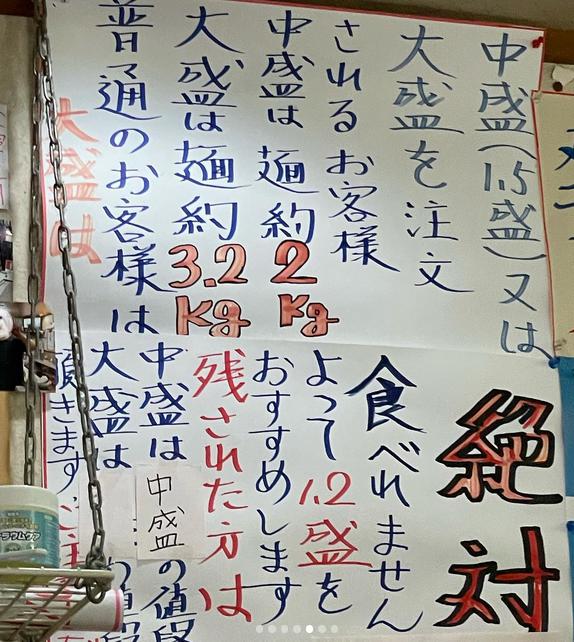 中盛(1.5盛)又は
大盛を注文
されるお客様
中盛は麺約2Kg
大盛は麺約3.2Kg
普通のお客様は
大盛は
絶対
食べれません
よって1.2盛を
おすすめします
残された方は
中盛は中盛の値段
大盛は の値段
頂きます